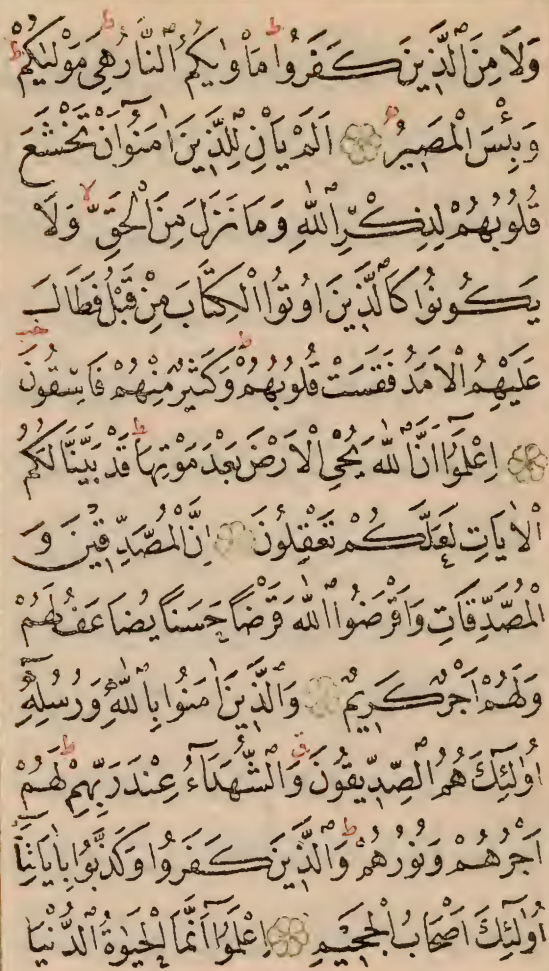 وَلَا مِنَ الَّذِينَ كَفَرُوا ط مَأْوٰيكُمُ النَّارُ ط هِيَ مَوْلٰيكُمْ ط
وَبِئْسَ الْمَصِيرُ اَلَمْ يَأْنِ لِلَّذِينَ اٰمَنُوٓا اَنْ تَخْشَعَ
قُلُوبُهُمْ لِذِكْرِ اللّٰهِ وَمَا نَزَلَ مِنَ الْحَقِّ لا وَلَا
يَكُونُوا كَالَّذِينَ اُوتُوا الْكِتَابَ مِنْ قَبْلُ فَطَالَ
عَلَيْهِمُ الْاَمَدُ فَقَسَتْ قُلُوبُهُمْ ط وَكَثِيرٌ مِنْهُمْ فَاسِقُونَ
اِعْلَمُوٓا اَنَّ اللّٰهَ يُحْيِ الْاَرْضَ بَعْدَ مَوْتِهَا ط قَدْ بَيَّنَّا لَكُمُ
الْاٰيَاتِ لَعَلَّكُمْ تَعْقِلُونَ اِنَّ الْمُصَّدِّقِينَ وَ
الْمُصَّدِّقَاتِ وَاَقْرَضُوا اللّٰهَ قَرْضًا حَسَنًا يُضَاعَفُ لَهُمْ
وَلَهُمْ اَجْرٌ كَرِيمٌ وَالَّذِينَ اٰمَنُوا بِاللّٰهِ وَرُسُلِهِٓ
اُولٰٓئِكَ هُمُ الصِّدِّيقُونَ ق وَالشُّهَدَآءُ عِنْدَ رَبِّهِمْ ط لَهُمْ
اَجْرُهُمْ وَنُورُهُمْ ط وَالَّذِينَ كَفَرُوا وَكَذَّبُوا بِاٰيَاتِنَآ
اُولٰٓئِكَ اَصْحَابُ الْجَحِيمِ اِعْلَمُوٓا اَنَّمَا الْحَيٰوةُ الدُّنْيَا